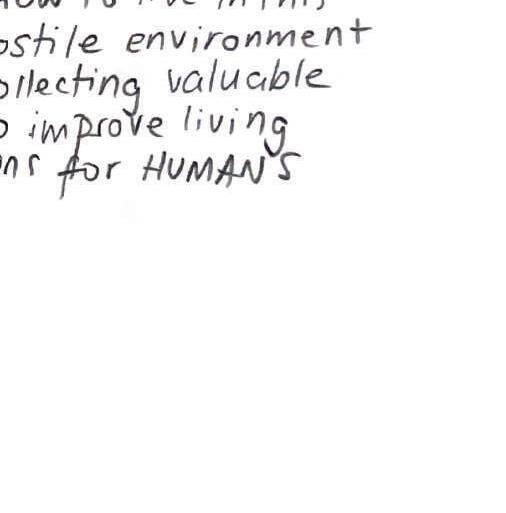 ostile environment
ollecting valuable
o improve living
ns for HUMANS